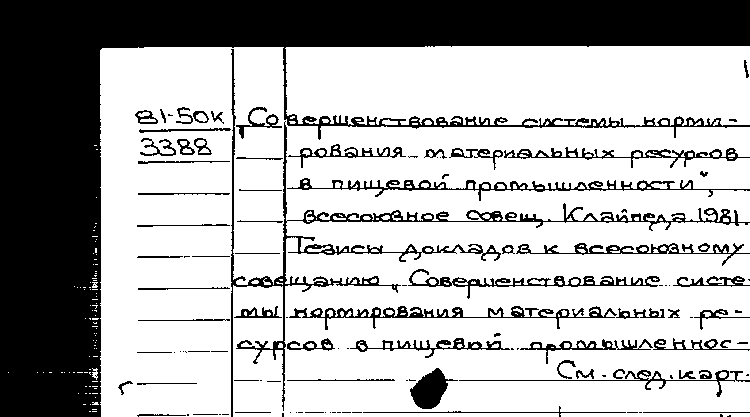 81-50к „Совершенствование системы норми-
3388
рования материальных ресурсов
в пищевой промышленности",
всесоюзное совещ. Клайпеда. 1981.
Тезисы докладов к всесоюзному
совещанию „Совершенствование систе-
мы нормирования материальных ре-
сурсов в пищевой промышленнос-
См. след. карт.